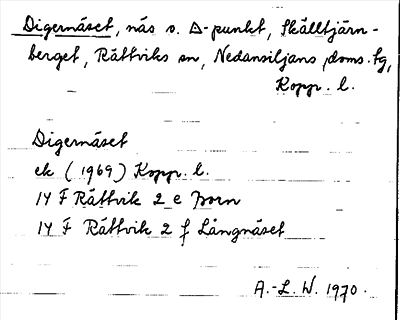 Digernäset, näs v. Δ-punkt, Skålltjärn-
berget, Rättviks sn, Nedansiljans doms. tg,
Kopp. l.
Digernäset
ek (1969) Kopp. l.
14 F Rättvik 2 e Born
14 F Rättvik 2 f Långnäset
A.-L. W. 1970.